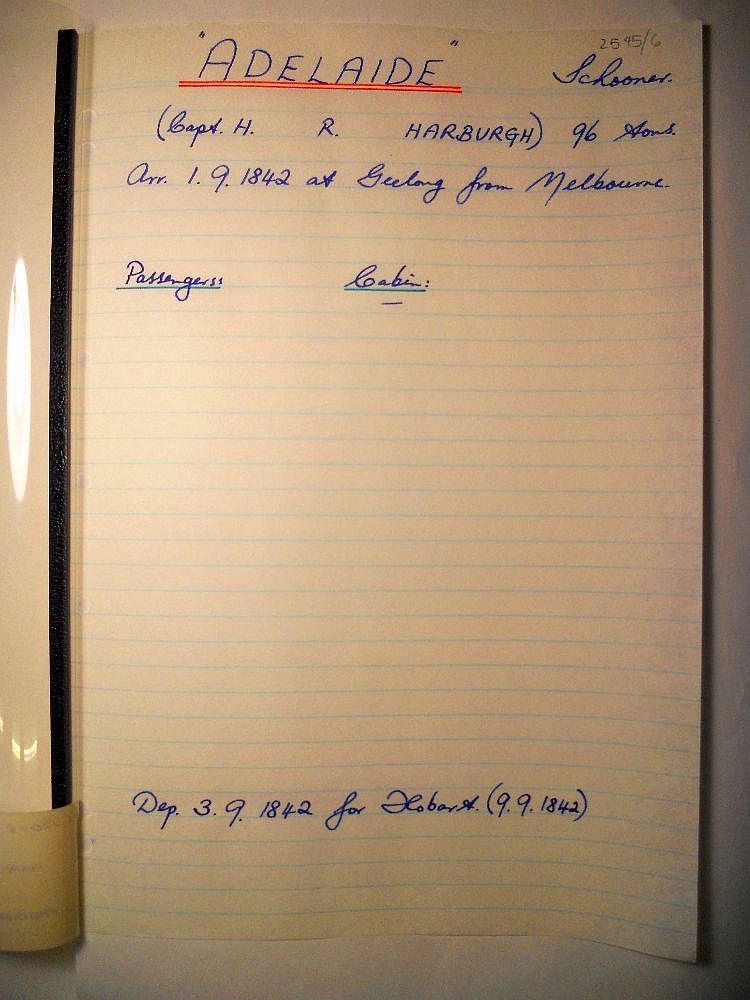 2545/6
"ADELAIDE" Schooner.
(Capt. H. R. HARBURGH) 96 tons.
Arr. 1. 9. 1842 at Geelong from Melbourne.
Passengers: Cabin:
—
Dep. 3. 9. 1842 for Hobart. (9. 9. 1842)